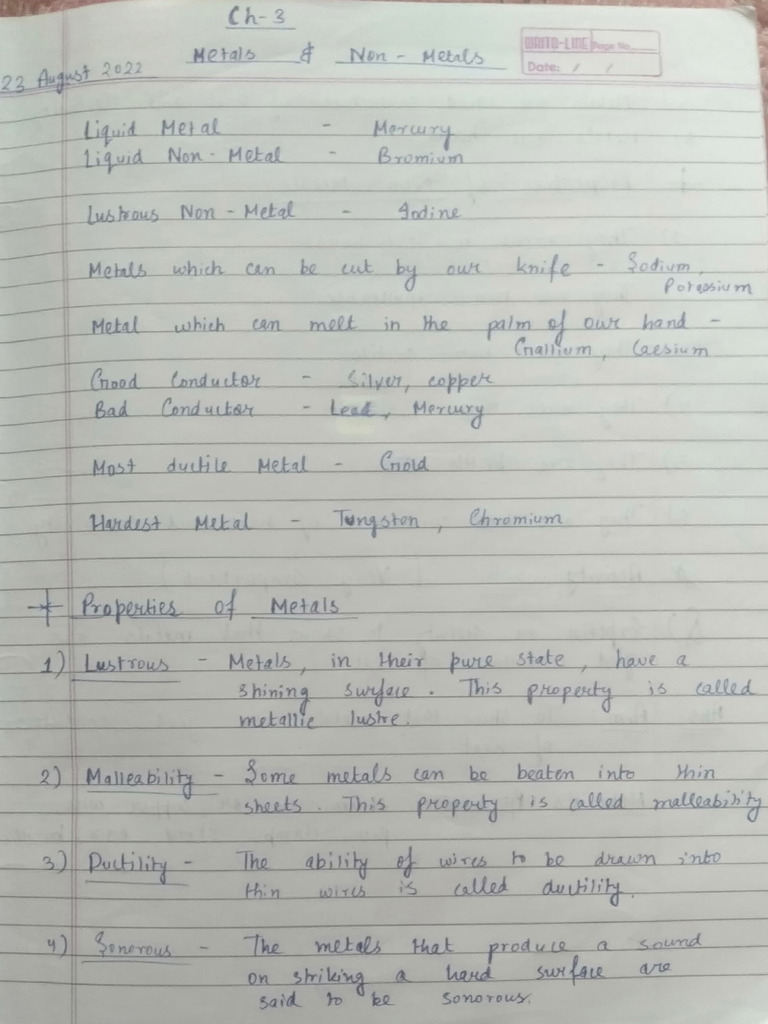 Ch-3
Metals & Non-Metals
WRITO-LINE Page No.
Date: / /
23 August 2022
Liquid Metal - Mercury
Liquid Non-Metal - Bromium
Lustrous Non-Metal - Iodine
Metals which can be cut by our knife - Sodium,
Potassium
Metal which can melt in the palm of our hand -
Gallium, Caesium
Good Conductor - Silver, copper
Bad Conductor - Lead, Mercury
Most ductile Metal - Gold
Hardest Metal - Tungston, Chromium
Properties of Metals
1) Lustrous - Metals, in their pure state, have a
shining surface. This property is called
metallic lustre.
2) Malleability - Some metals can be beaten into thin
sheets. This property is called malleability
3) Ductility - The ability of wires to be drawn into
thin wires is called ductility.
4) Sonorous - The metals that produce a sound
on striking a hard surface are
said to be sonorous.